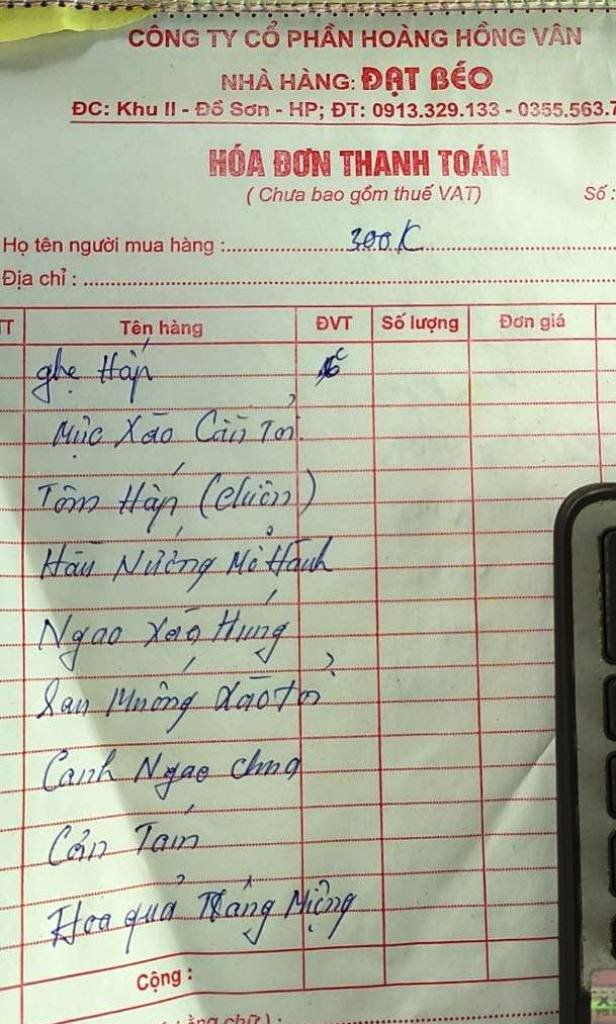 CÔNG TY CỔ PHẦN HOÀNG HỒNG VÂN
NHÀ HÀNG: ĐẠT BÉO
ĐC: Khu II - Đồ Sơn - HP; ĐT: 0913.329.133 - 0355.563.7
HÓA ĐƠN THANH TOÁN
( Chưa bao gồm thuế VAT) Số :
Họ tên người mua hàng : 300K
Địa chỉ :
TT Tên hàng ĐVT Số lượng Đơn giá
ghẹ Hấp
Mực Xào Cần Tỏi
Tôm Hấp (chiên)
Hàu Nướng Mỡ Hành
Ngao Xào Húng
Rau Muống Xào tỏi
Canh Ngao chua
Cơm Tám
Hoa quả Tráng Miệng
Cộng :
bằng chữ) :